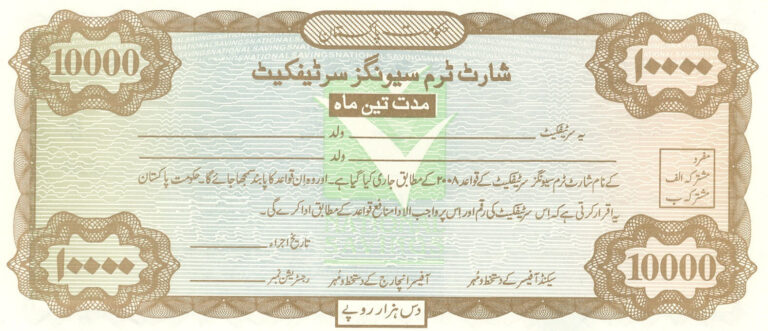 حکومت پاکستان
NATIONAL SAVINGS NATIONAL SAVINGS
10000
۱۰۰۰۰
شارٹ ٹرم سیونگز سرٹیفکیٹ
مدت تین ماہ
یہ سرٹیفکیٹ ولد
ولد
مفرد
مشترکہ الف
مشترکہ ب
کے نام شارٹ ٹرم سیونگز سرٹیفکیٹ کے قواعد ۲۰۰۸ کے مطابق جاری کیا گیا ہے۔ اور وہ ان قواعد کا پابند سمجھا جائے گا۔ حکومت پاکستان
یہ اقرار کرتی ہے کہ اس سرٹیفکیٹ کی رقم اور اس پر واجب الادا منافع قواعد کے مطابق ادا کرے گی۔
تاریخ اجراء
سیکنڈ آفیسر کے دستخط و مُہر آفیسر انچارج کے دستخط و مُہر رجسٹریشن نمبر
۱۰۰۰۰
10000
دس ہزار روپے